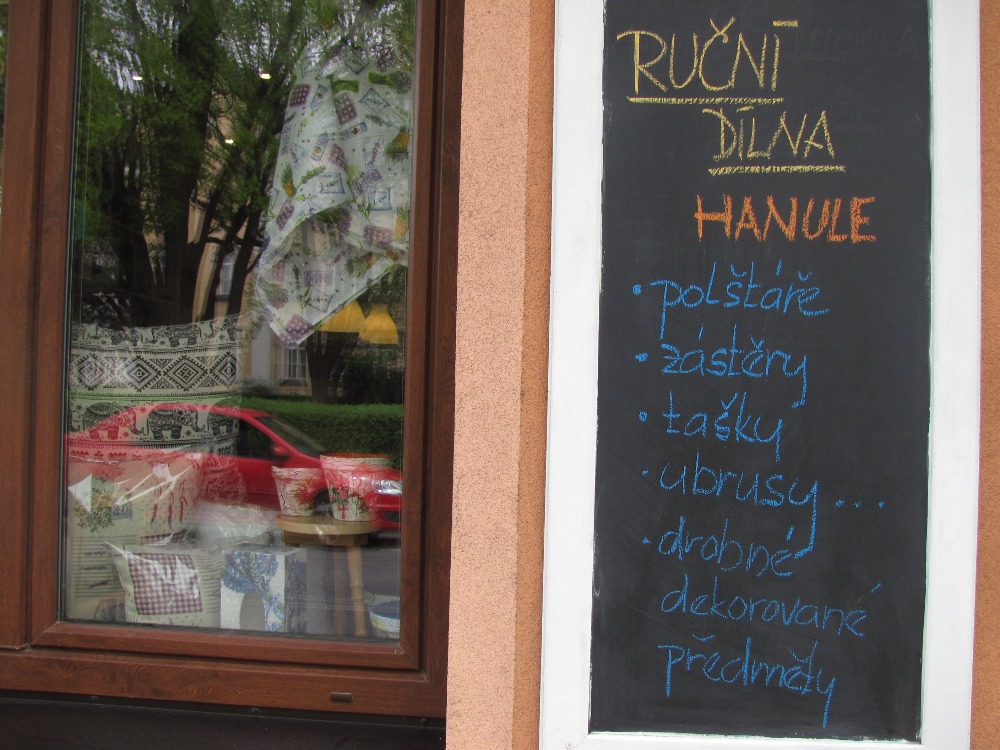 RUČNÍ
DÍLNA
HANULE
• polštáře
• zástěry
• tašky
• ubrusy...
• drobné
dekorované
předměty